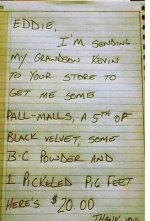 EDDIE,
I'M SENDING
MY GRANDSON KEVIN
TO YOUR STORE TO
GET ME SOME
PALL-MALLS, A 5TH OF
BLACK VELVET, SOME
B-C POWDER AND
1 PICKELED PIG FEET
HERE'S $20.00
THANK YOU